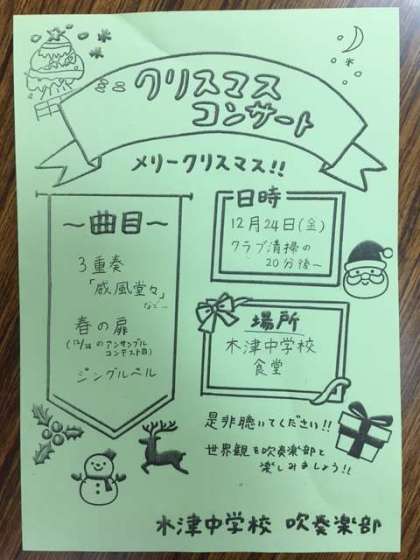 ミニ クリスマス
コンサート
メリークリスマス!!
〜曲目〜
3重奏
「威風堂々」
など…
春の扉
(12/26のアンサンブル
コンテスト曲)
ジングルベル
日時
12月24日(金)
クラブ清掃の
20分後〜
場所
木津中学校
食堂
是非聴いてください!!
世界観を吹奏楽部と
楽しみましょう!!
木津中学校 吹奏楽部